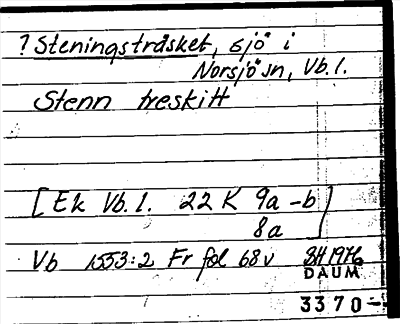 ? Steningsträsket, sjö i
Norsjö sn, Vb. l.
Stenn treskitt
[Ek Vb. l. 22 K 9a-b]
8a
Vb 1553:2 Fr fol 68 v SH 1976
DAUM
3370